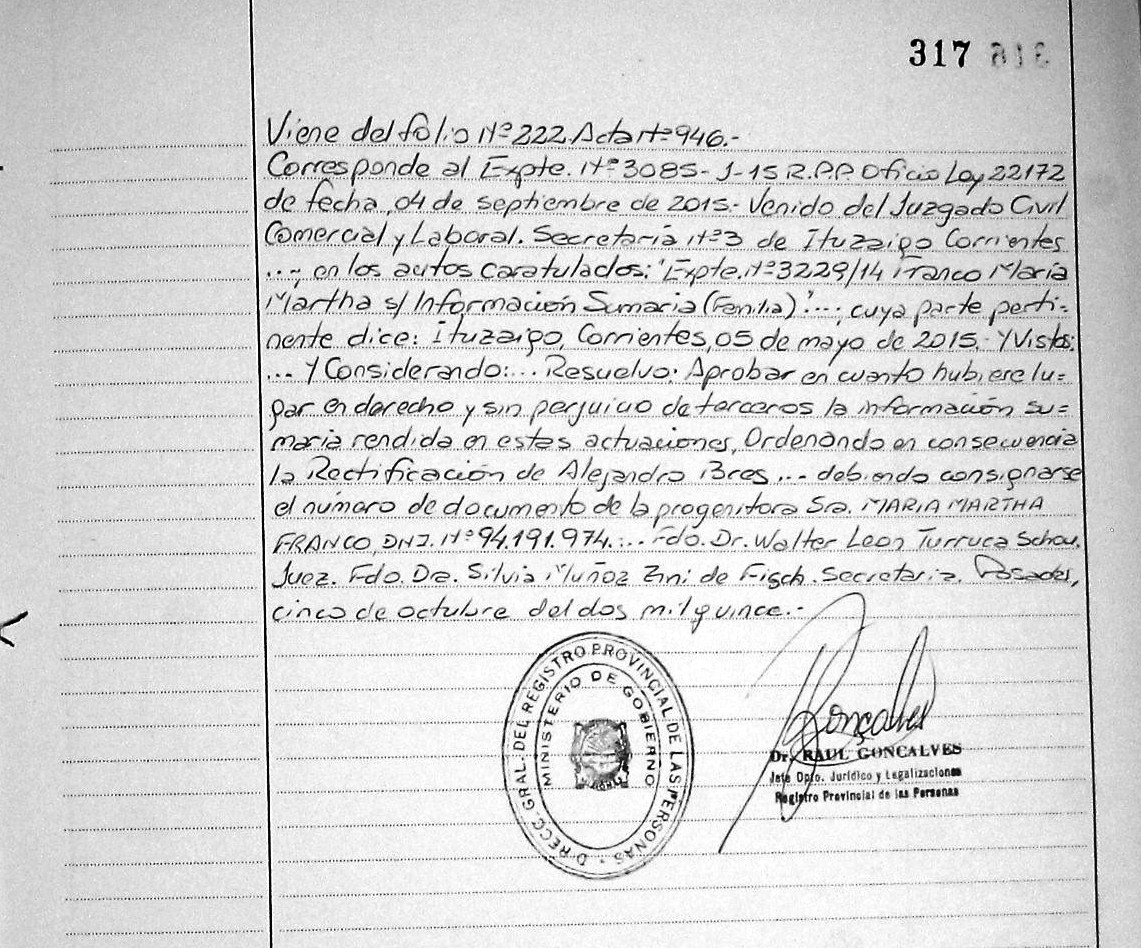 317 316
Viene del folio Nº 222. Acta Nº 946.-
Corresponde al Expte. Nº 3085-J-15 R.P.P. Oficio Ley 22172
de fecha, 04 de septiembre de 2015.- Venido del Juzgado Civil
Comercial y Laboral. Secretaría Nº 3 de Ituzaigo Corrientes
...; en los autos caratulados: "Expte. Nº 3229/14 Franco María
Martha s/ Información Sumaria (Fenilia)"...; cuya parte perti-
nente dice: Ituzaigo, Corrientes, 05 de mayo de 2015.- Y Vistos:
... Y Considerando:... Resuelvo: Aprobar en cuanto hubiere lu=
gar en derecho y sin perjuicio de terceros la información su=
maria rendida en estas actuaciones, Ordenando en consecuencia
la Rectificación de Alejandro Bres ... debiendo consignarse
el número de documento de la progenitora Sra. MARIA MARTHA
FRANCO, DNI. Nº 94.191.974.... Fdo. Dr. Walter Leon Turruca Schou.
Juez. Fdo. Dra. Silvia Muñoz Zini de Fisch. Secretaria. Posadas,
cinco de octubre del dos mil quince.-
DIRECC. GRAL. DEL REGISTRO PROVINCIAL DE LAS PERSONAS
MINISTERIO DE GOBIERNO
Goncalves
Dr. RAUL GONCALVES
Jefe Dpto. Jurídico y Legalizaciones
Registro Provincial de las Personas